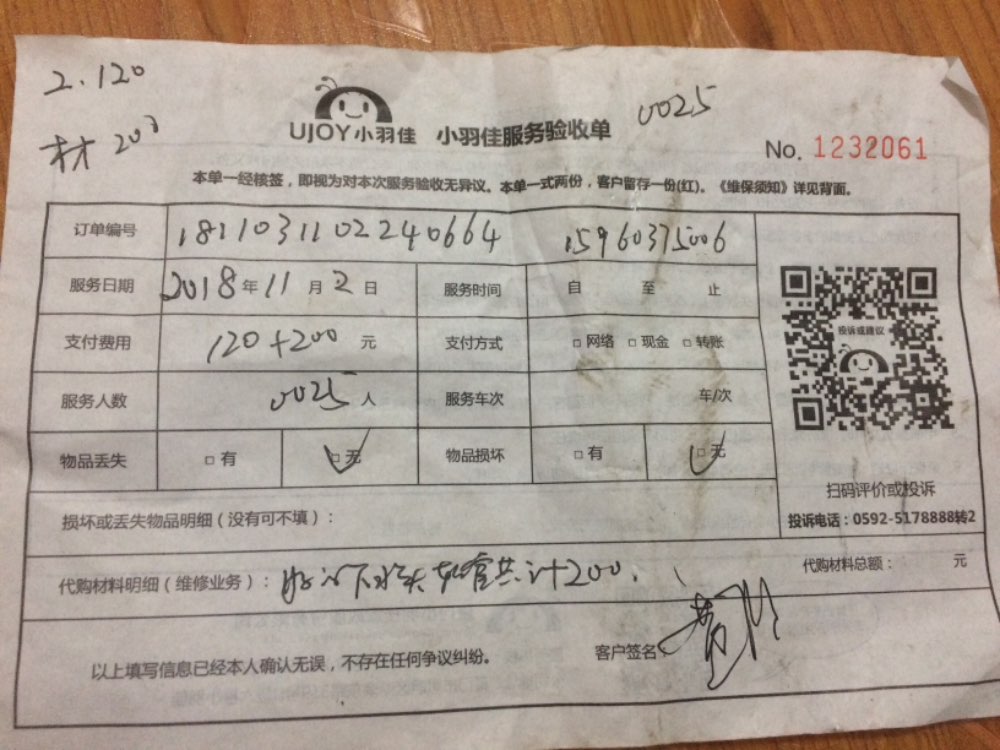 2.120
材 200
0025
UJOY小羽佳 小羽佳服务验收单
No. 1232061
本单一经核签，即视为对本次服务验收无异议。本单一式两份，客户留存一份(红)。《维保须知》详见背面。
订单编号 181103110224 0664 15960375006
服务日期 2018年11月2日 服务时间 自 至 止
支付费用 120+200 元 支付方式 □网络 □现金 □转账
服务人数 0025 人 服务车次 车/次
物品丢失 □有 □无 物品损坏 □有 □无
投诉或建议
扫码评价或投诉
投诉电话：0592-5178888转2
损坏或丢失物品明细（没有可不填）：
代购材料明细（维修业务）： 下水 软管共计200.
代购材料总额： 元
以上填写信息已经本人确认无误，不存在任何争议纠纷。
客户签名